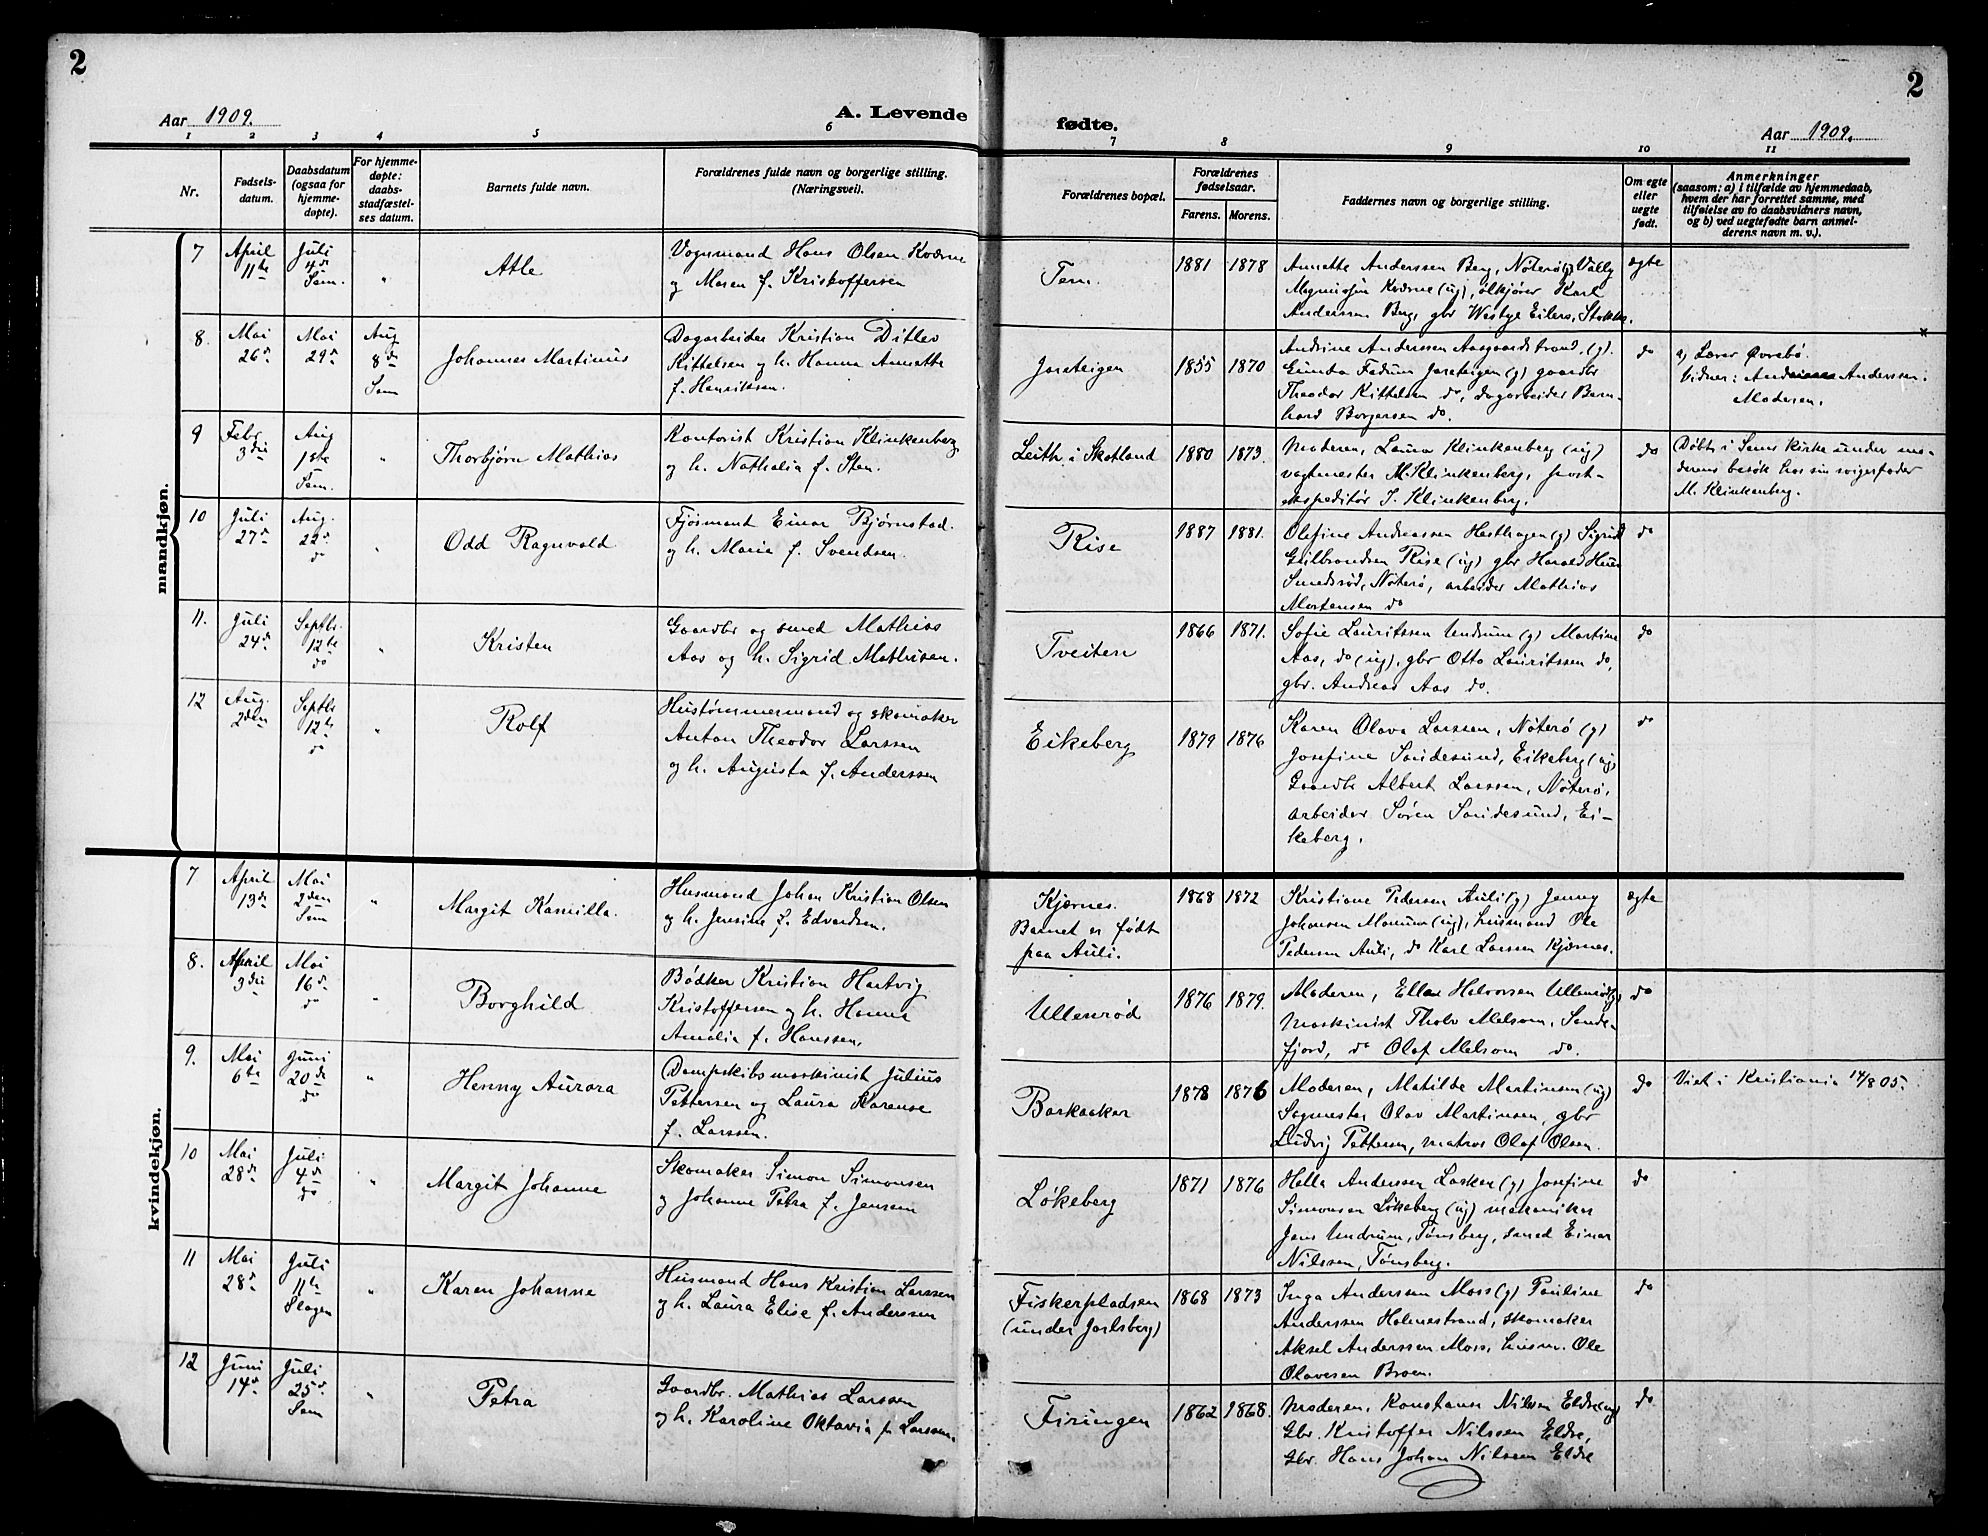 2
2
Aar 1909.
A. Levende
fødte.
Aar 1909.
1 2 3 4 5 6 7 8 9 10 11
Nr.
Fødsels-
datum.
Daabsdatum
(ogsaa for
hjemme-
døpte).
For hjemme-
døpte:
daabs-
stadfæstel-
ses datum.
Barnets fulde navn.
Forældrenes fulde navn og borgerlige stilling.
(Næringsvei).
Forældrenes bopæl.
Forældrenes
fødselsaar.
Farens. Morens.
Faddernes navn og borgerlige stilling.
Om egte
eller
uegte
født.
Anmerkninger
(saasom: a) i tilfælde av hjemmedaab,
hvem der har forrettet samme, med
tilføielse av to daabsvidners navn,
og b) ved uegtefødte barn anmel-
derens navn m. v.).
mandkjøn.
7
April
11te
Juli
4de
Sem.
"
Atle
Vognmand Hans Olsen Kværne
og Maren f. Kristoffersen
Tem.
1881 1878
Annette Anderssen Berg, Nøterø (g) Vally
Magnussen Kværne (ug), ølkjører Karl
Anderssen Berg, gbr Westye Eilers, Stokke.
ægte
8.
Mai
26de
Mai
29de
Aug
8de
Sem
Johannes Martinius
Dagarbeider Kristian Ditlev
Kittelsen og h. Hanna Annette
f. Henrikssen.
Jareteigen
1855 1870
Andrine Anderssen Aasgaardstrand, (g).
Gunda Fadum Jareteigen (g) gaardbr
Theodor Kittelsen do, dagarbeider Bern-
hard Borgersen do.
do
a) Lærer Øvrebø.
Vidner: Anderssen.
Moderen.
9
Febr
3die
Aug
1ste
Sem.
"
Thorbjørn Mathias
Kontorist Kristian Klinkenberg
og h. Nathalia f. Sten.
Leith i Skotland
1880 1873.
Moderen, Laura Klinkenberg (ug)
vagtmester M. Klinkenberg, post-
ekspeditør J. Klinkenberg.
do
Døbt i Sems kirke under mo-
derens besøk hos sin svigerfader
M. Klinkenberg.
10
Juli
27de
Aug.
22de
do
"
Odd Ragnvald
Fjøsmand Einar Bjørnstad.
og h. Marie f. Svendsen.
Rise
1887 1881.
Olefine Andreassen Hesthagen (g) Sigrid
Gulbrandsen Rise (ug) gbr Harald
Smedsrød, Nøterø, arbeider Mathias
Mortensen do
do
11.
Juli
24de
Septbr.
12te
do
"
Kristen
Gaardbr og smed Mathias
Aas og h. Sigrid Mathisen.
Tveiten
1866 1871.
Sofie Lauritssen Undrum (g) Martine
Aas, do (ug), gbr Otto Lauritssen do,
gbr. Andreas Aas do.
do
12
Aug.
2den
Septbr
12te
do
"
Rolf
Hustømmermand og skomaker
Anton Theodor Larssen
og h. Augusta f. Anderssen
Eikeberg
1879 1876
Karen Olava Larssen, Nøterø (g)
Josefine Sandesund, Eikeberg (ug)
Gaardbr Albert Larssen, Nøterø,
arbeider Søren Sandesund, Ei-
keberg.
do
kvindekjøn.
7
April
13de
Mai
2den
Sem
"
Margit Kamilla.
Husmand Johan Kristian Olsen
og h. Jensine f. Edvardsen.
Kjærnes.
Barnet er født
paa Auli.
1868 1872
Kristiane Pedersen Auli (g) Jenny
Johansen Manum (ug), husmand Ole
Pedersen Auli, do Karl Larssen Kjærnes.
ægte
8.
April
3die
Mai
16de
do
"
Borghild
Bødker Kristian Hartvig
Kristoffersen og h. Hanna
Amalia f. Hanssen.
Ullenrød
1876 1879.
Moderen, Ella Halvorsen Ullenrød (g)
maskinist Thalv Melsom, Sande-
fjord, do Olaf Melsom do.
do
9.
Mai
6te
Juni
20de
do
"
Henny Aurora
Dampskibsmaskinist Julius
Pettersen og Laura Karense
f. Larssen.
Barkaaker
1873 1876
Moderen, Matilde Martinsen (ug)
Sagmester Olav Martinsen, gbr
Ludvig Pettersen, matros Olaf Olsen.
do
Viet i Kristiania 14/8 05.
10
Mai
28de
Juli
4de
do
"
Margit Johanne
Skomaker Simon Simonsen
og Johanne Petra f. Jensen
Løkeberg
1871 1876
Helle Anderssen Lasken (g) Josefine
Simonsen Løkeberg (ug) mekaniker
Jens Undrum, Tønsberg, smed Einar
Nilssen, Tønsberg.
do
11
Mai
28de
Juli
11te
Slagen
"
Karen Johanne
Husmand Hans Kristian Larssen
og h. Laura Elise f. Anderssen
Fiskerpladsen
(under Jarlsberg)
1868 1873
Inga Anderssen Moss (g) Pauline
Anderssen Holmestrand, skomaker
Aksel Anderssen Moss, husm. Ole
Olavesen Broen.
do
12
Juni
14de
Juli
25de
Sem
"
Petra
Gaardbr. Mathias Larssen
og h. Karoline Oktavia f. Larssen.
Firingen
1862 1868.
Moderen, Konstanse Nilsen Eldre (ug)
Gbr. Kristoffer Nilssen Eldre,
Gbr. Hans Johan Nilsen Eldre
do